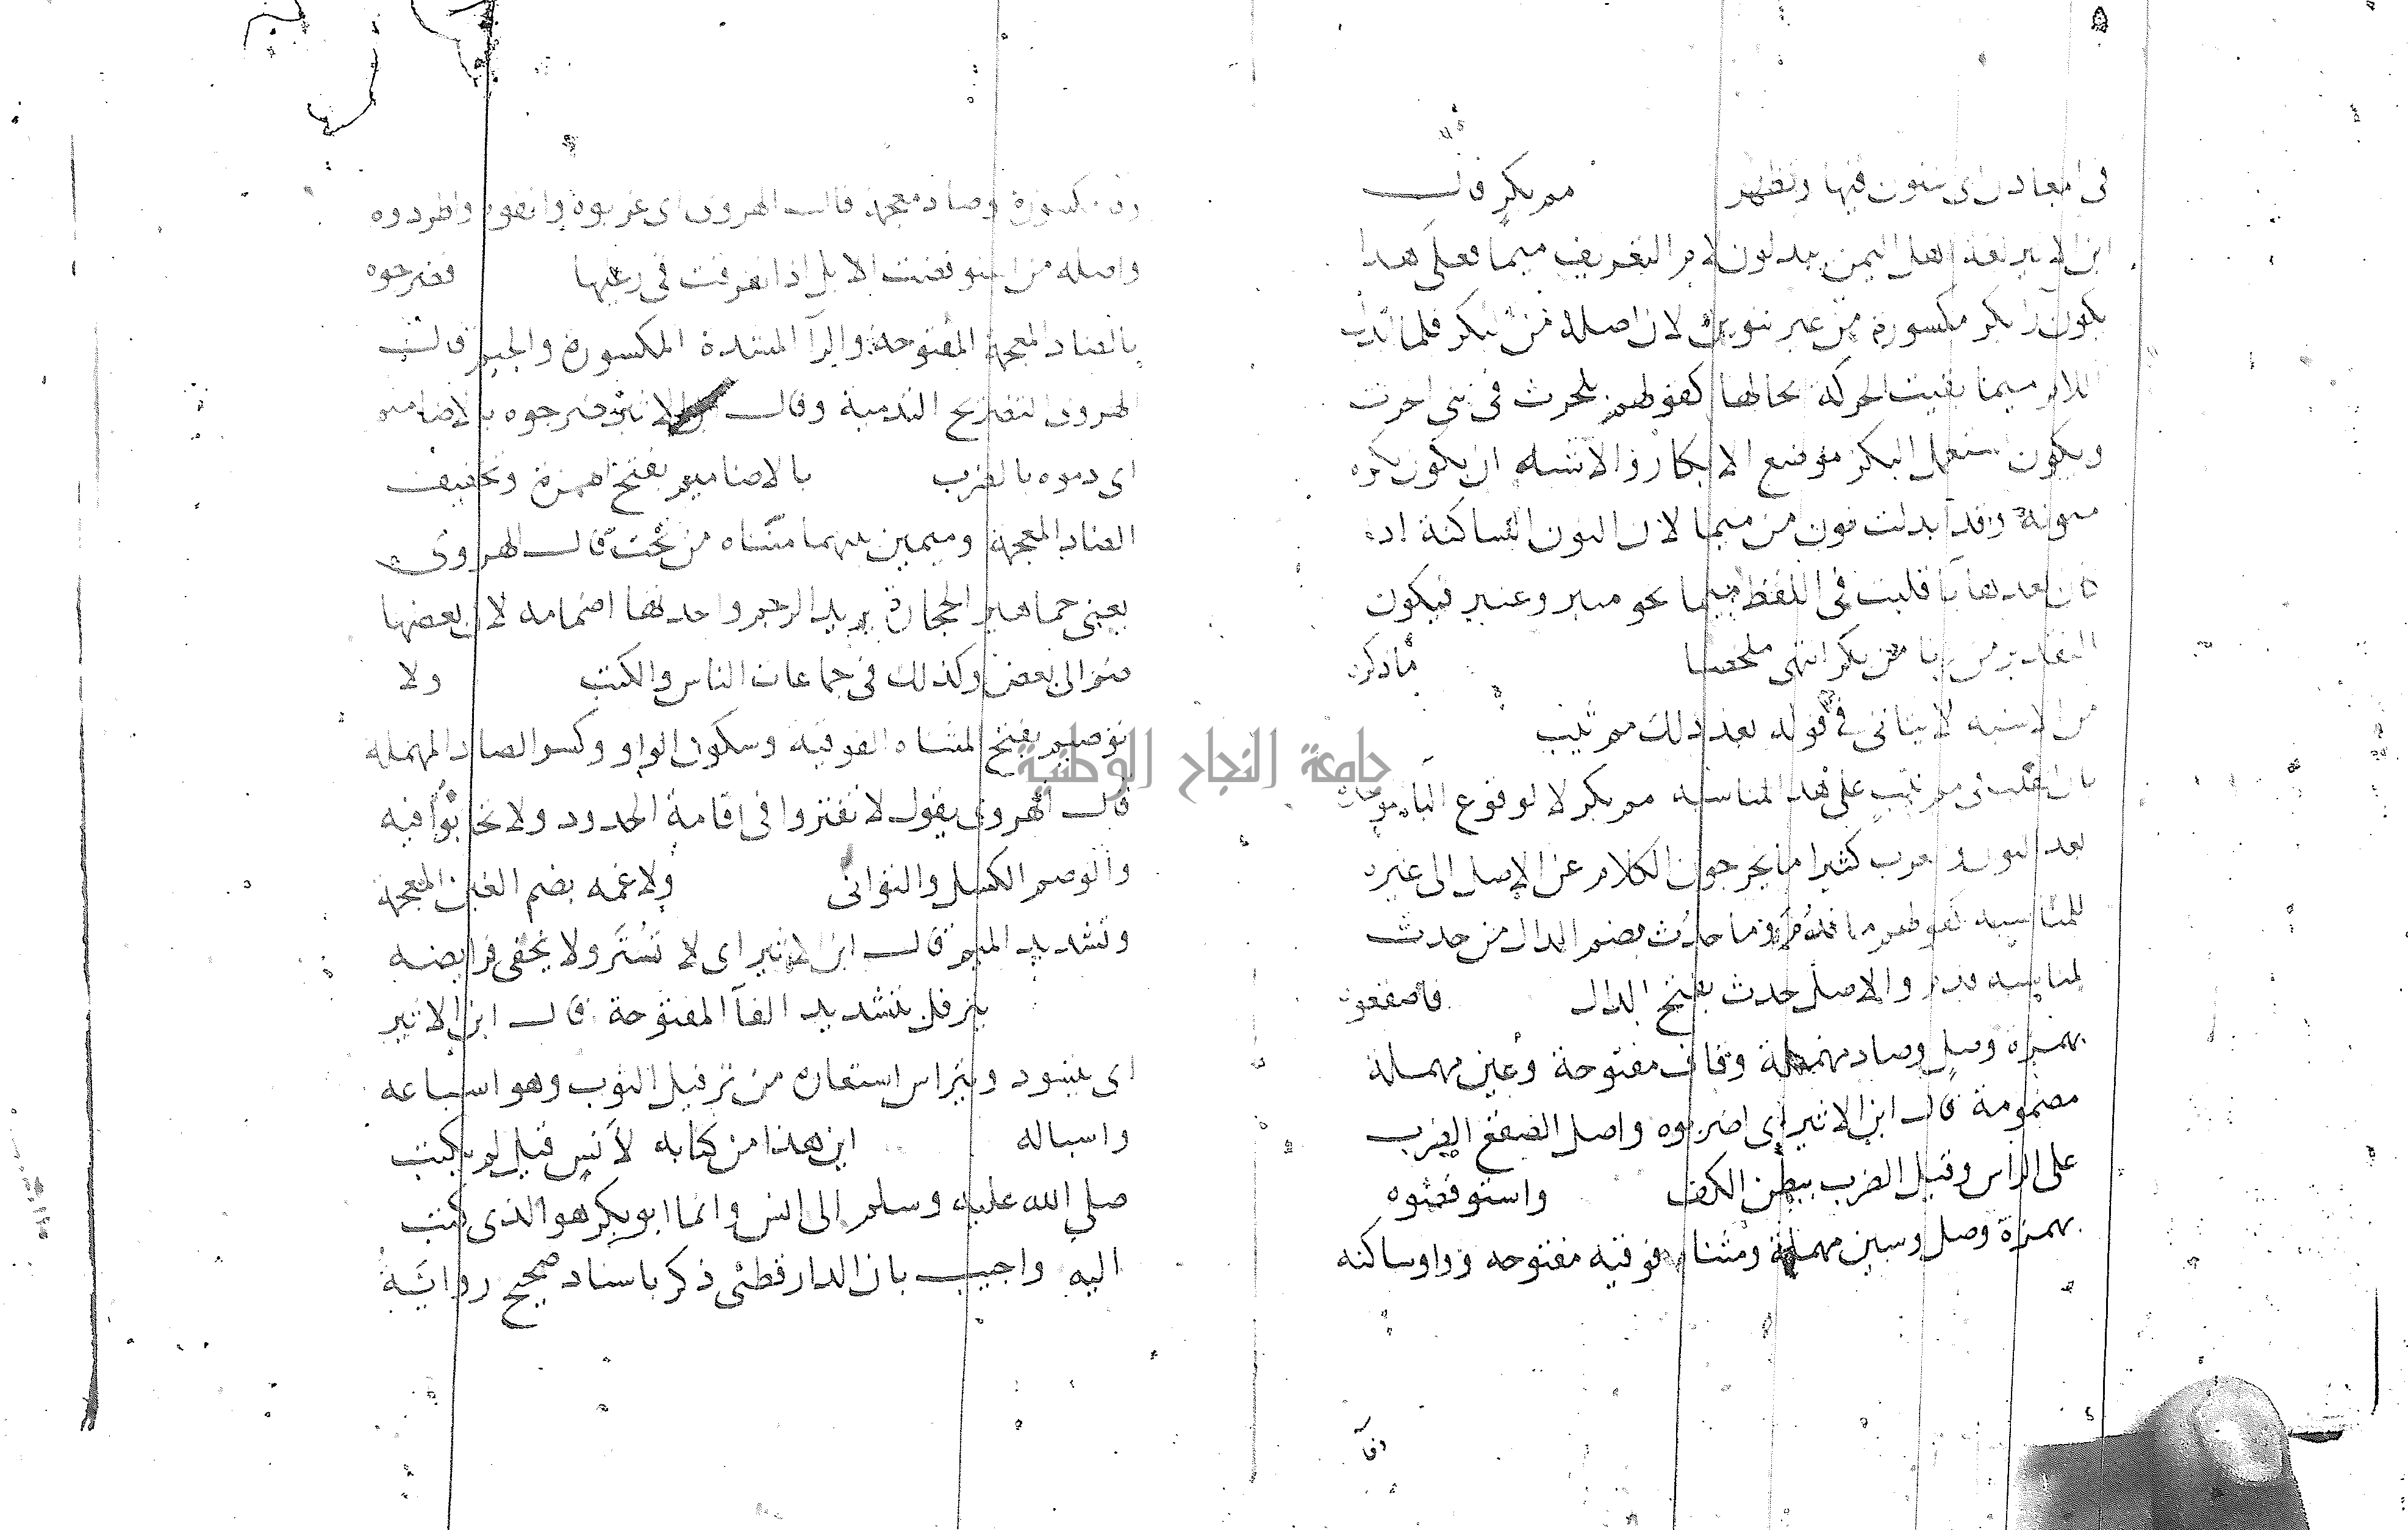 في امعادن اي ينون فيها وتظهر مم بكر قال
ابن الاثير لغة اهل اليمن يبدلون لام التعريف ميما فعلى هذا
يكون را بكر مكسورة من غير تنوين لان اصله من البكر فلما ابدلت
اللام ميما بقيت الحركة بحالها كقولهم بلحرث في بني الحرث
ويكون استعمل البكر موضع الابكار والاشبه ان يكون بكره
منونة وقد ابدلت نون من ميما لان النون الساكنة اذا
كان بعدها با قلبت في اللفظ ميما نحو منبر وعنبر فيكون
التقدير من زنا من بكر انتهى ملخصا ماذكره
من الاشبه لا ينافي في قوله بعد ذلك مم ثيب
بان قلب في مم ثيب على هذا لمناسبة مم بكر لا لوقوع البا
بعد النون والعرب كثيرا ما يخرجون الكلام عن الاصل الى غيره
للمناسبة كقولهم ما قدم وما حدث بضم الدال من حدث
لمناسبة قدم والاصل حدث بفتح الدال فاصقعوه
بهمزة وصل وصاد مهملة وقاف مفتوحة وعين مهملة
مضمومة قال ابن الاثير اي اضربوه واصل الصقع الضرب
على الراس وقيل الضرب ببطن الكف واستوفضوه
بهمزة وصل وسين مهملة ومثناه فوقيه مفتوحه وواو ساكنه
وفا
وفا مكسورة وضاد معجمة قال الهروي اي غربوه وانفوه واطردوه
واصله من استوفضت الابل اذا تفرقت في رعيها فضرجوه
بالضاد المعجمة المفتوحة والرآ المشددة المكسورة والجيم قال
الهروي التضريج التدمية وقال ابن الاثير فضرجوه بالاضاميم
اي دموه بالضرب بالاضاميم بفتح الهمزة وتخفيف
الضاد المعجمة وميمين بينهما مثناه من تحت قال الهروي
يعني جماهير الحجارة يريد الرجم واحدتها اضمامه لان بعضها
ضم الى بعض وكذلك في جماعات الناس والكتب ولا
توصيم بفتح المثناه الفوقية وسكون الواو وكسر الصاد المهملة
قال الهروي يقول لا تفتروا في اقامة الحدود ولا تحابوا فيه
والوصم الكسل والتواني ولا غمه بضم الغين المعجمة
وتشديد الميم قال ابن الاثير اي لا تستر ولا يخفى فرايضه
يترفل بتشديد الفآ المفتوحة قال ابن الاثير
اى يتسود ويتراس استعاره من ترفيل الثوب وهو اسباغه
واسباله اين هذا من كتابه لأنس قيل لم يكتب
صلى الله عليه وسلم الى انس وانما ابو بكر هو الذى كتب
اليه واجيب بان الدارقطنى ذكر باسناد صحيح رواية
جامعة النجاح الوطنية